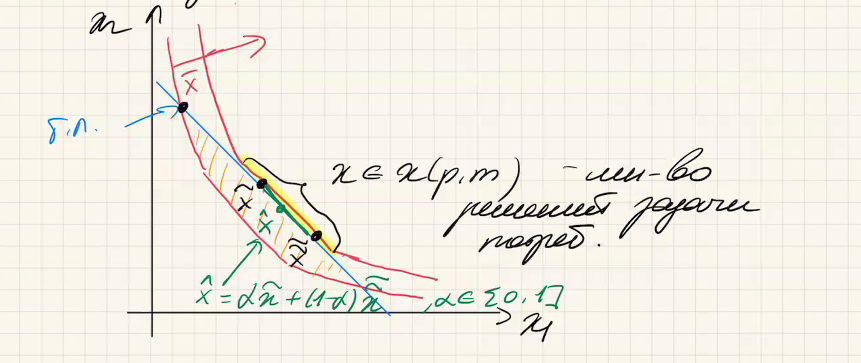 x₂
x̄
б.л.
x ∈ x(p,m) - мн-во
решений задачи
потреб.
x̃
x̂
x̃̃
x̂ = αx̃ + (1-α)x̃̃, α ∈ [0,1]
x₁